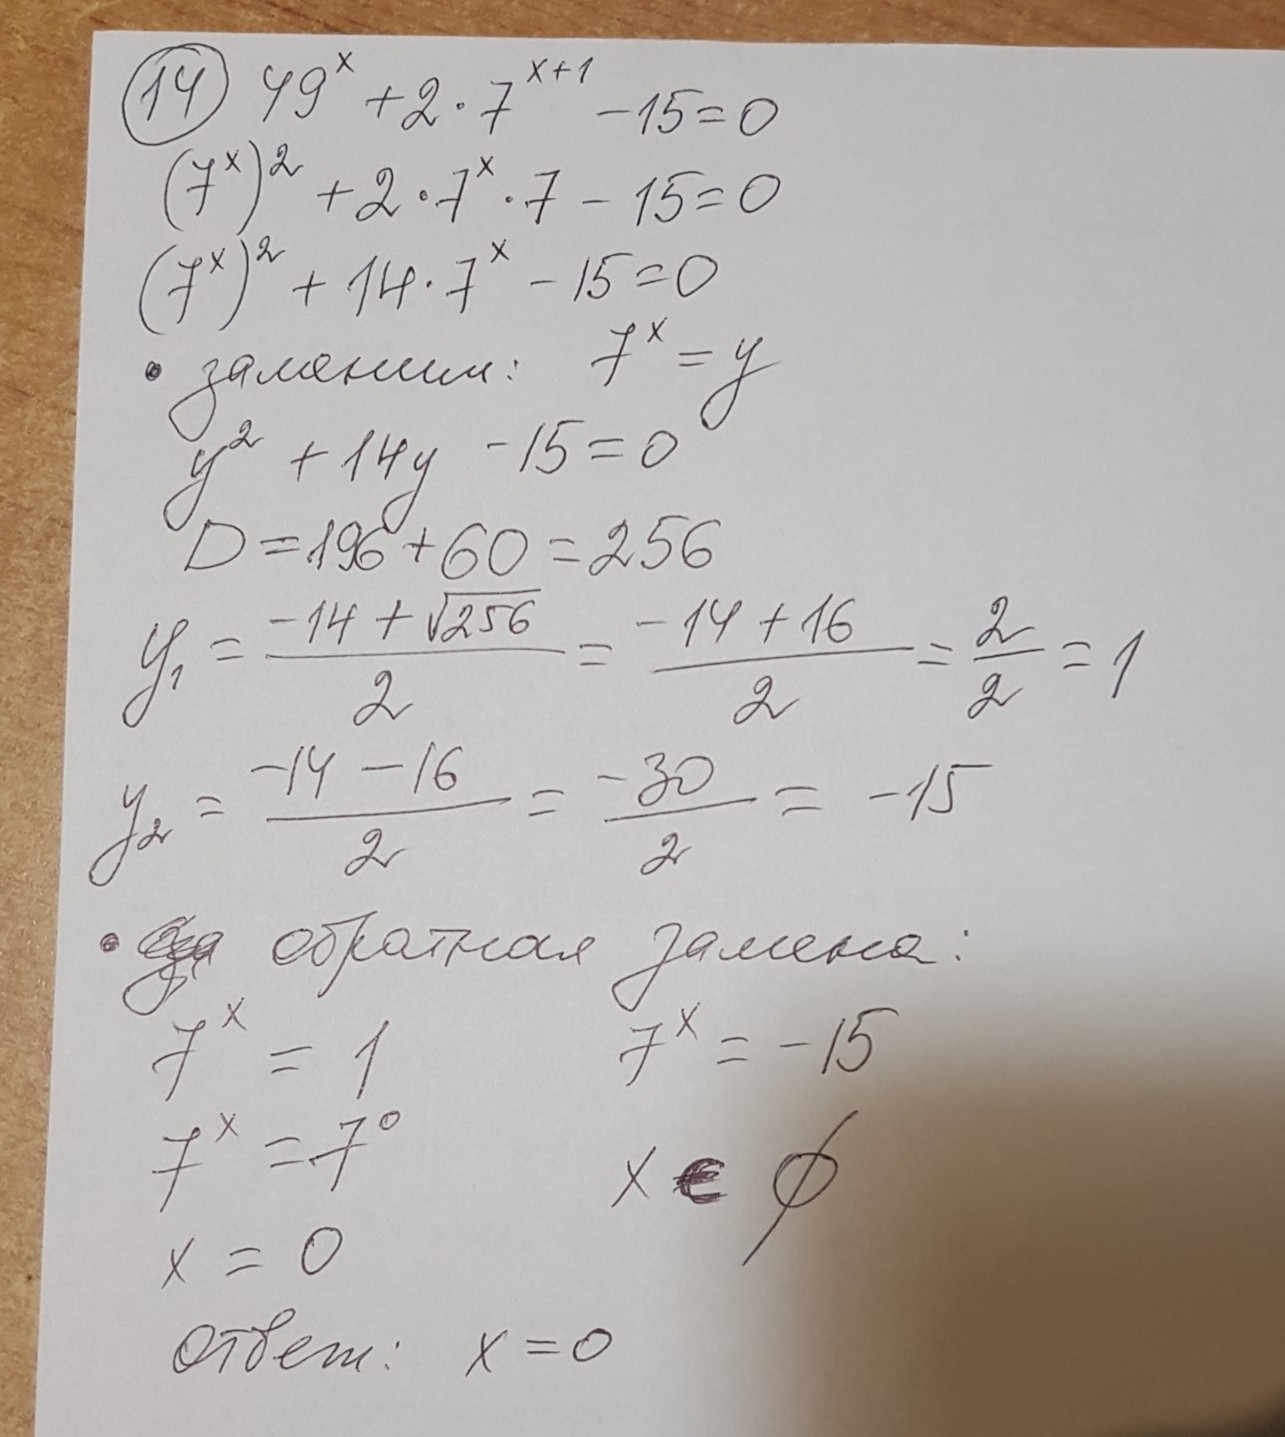 14 49^x + 2 · 7^(x+1) − 15 = 0
(7^x)^2 + 2 · 7^x · 7 − 15 = 0
(7^x)^2 + 14 · 7^x − 15 = 0
• заменим: 7^x = y
y^2 + 14y − 15 = 0
D = 196 + 60 = 256
y₁ = (−14 + √256)/2 = (−14 + 16)/2 = 2/2 = 1
y₂ = (−14 − 16)/2 = −30/2 = −15
• обратная замена:
7^x = 1 7^x = −15
7^x = 7^0 x ∈ ∅
x = 0
ответ: x = 0